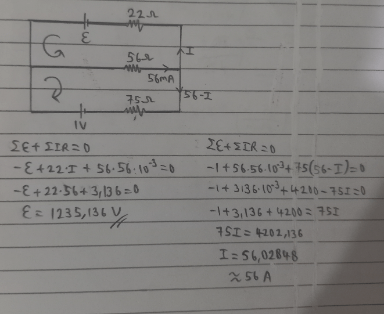 22Ω
ε
I
56Ω
56mA
56-I
75Ω
1V
Σε+ΣIR=0
-ε+22.I+56.56.10⁻³=0
-ε+22.56+3,136=0
ε=1235,136 V
Σε+ΣIR=0
-1+56.56.10⁻³+75(56-I)=0
-1+3,136.10⁻³+4200-75I=0
-1+3,136+4200=75I
75I=4202,136
I=56,02848
≈56 A